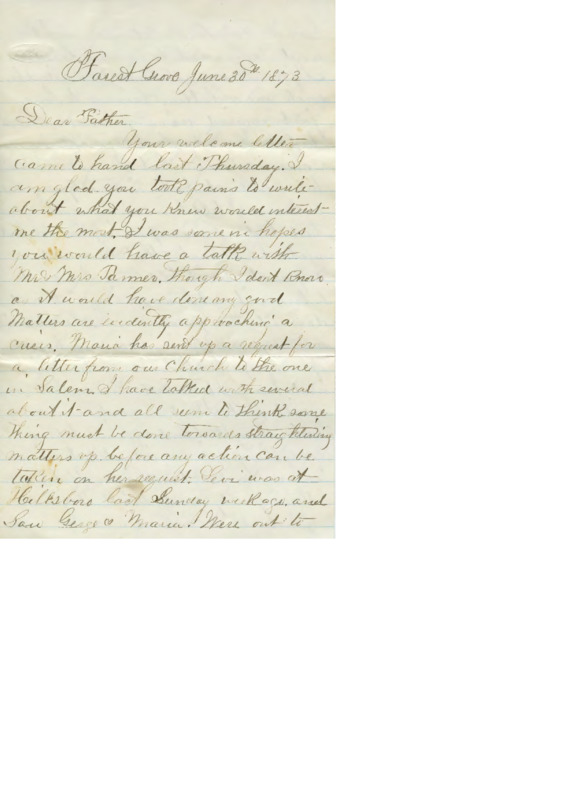 Forest Grove June 30th 1873
Dear Father
Your welcome letter
came to hand last Thursday. I
am glad you took pains to write
about what you knew would interest
me the most. I was some in hopes
you would have a talk with
Mr & Mrs Parmer. though I dont know
as it would have done any good
Matters are evidently approaching a
crisis. Maria has sent up a request for
a letter from our Church to the one
in Salem. I have talked with several
about it and all seem to think some
thing must be done towards straightening
matters up before any action can be
taken on her request. Levi was at
Hillsboro last Sunday week ago. and
Saw George & Maria. Were out to